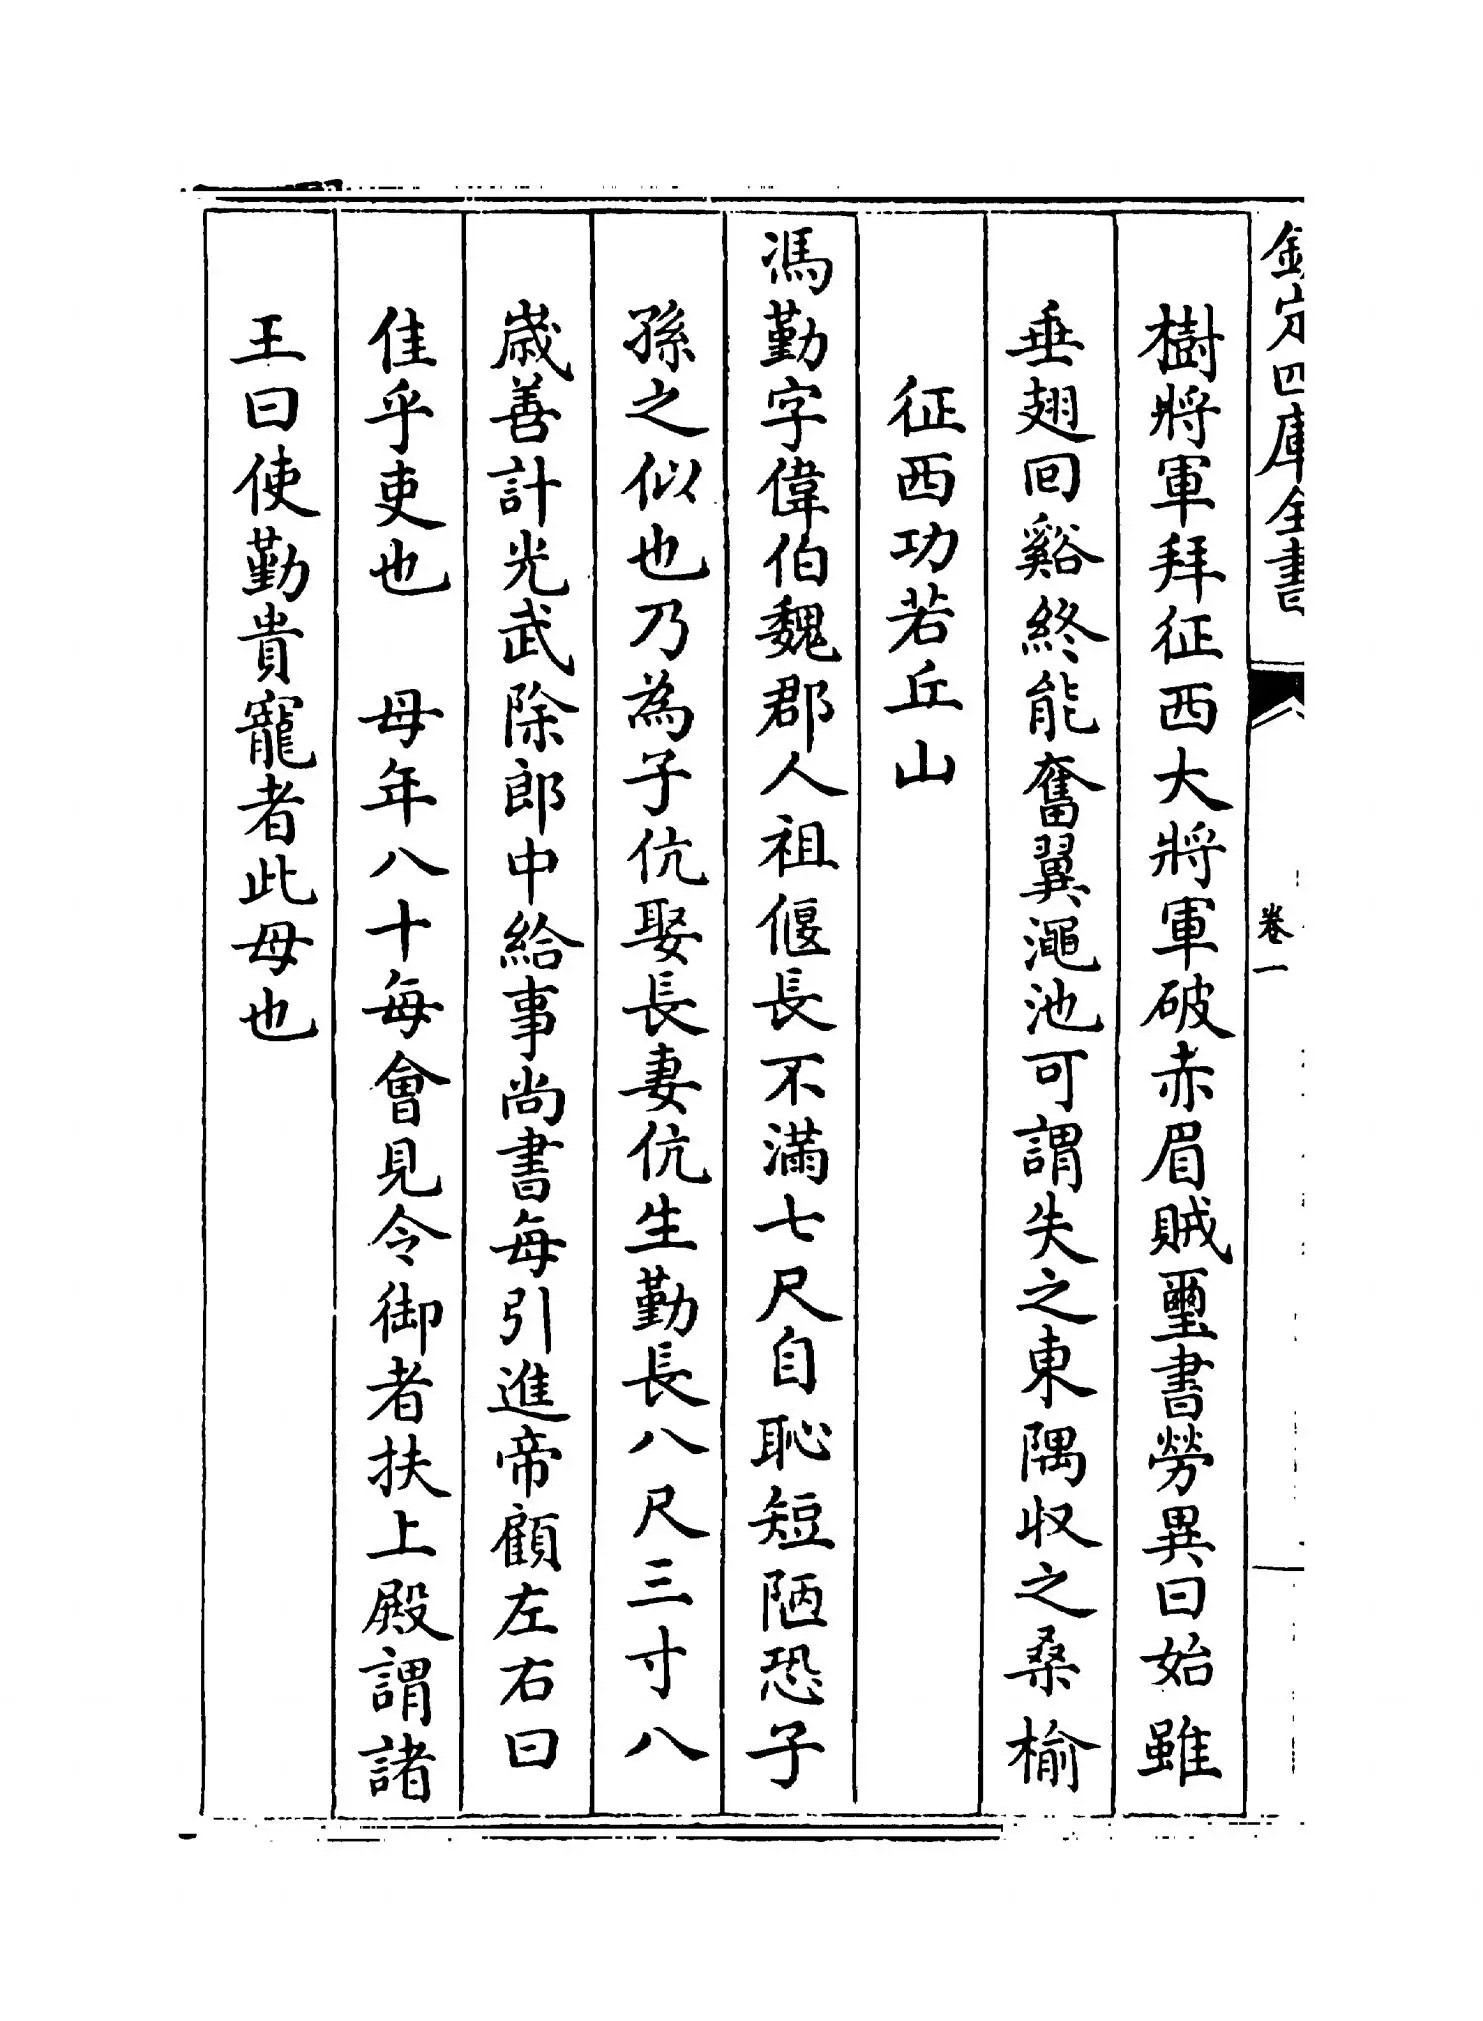 欽定四庫全書
卷一
樹將軍拜征西大將軍破赤眉賊璽書勞異曰始雖
垂翅回谿終能奮翼澠池可謂失之東隅収之桑榆
征西功若丘山
馮勤字偉伯魏郡人祖偃長不滿七尺自恥短陋恐子
孫之似也乃為子伉娶長妻伉生勤長八尺三寸八
歲善計光武除郎中給事尚書每引進帝顧左右曰
佳乎吏也　母年八十每會見令御者扶上殿謂諸
王曰使勤貴寵者此母也